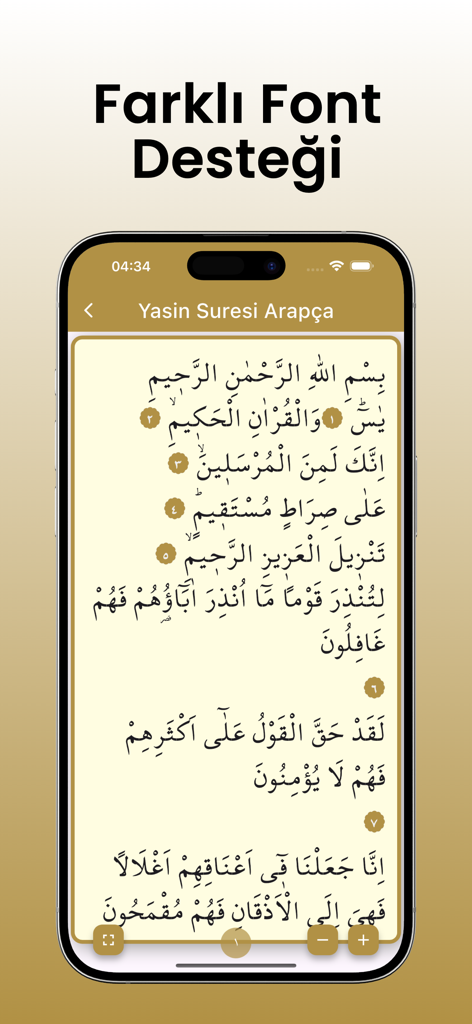 Farklı Font
Desteği
04:34
Yasin Suresi Arapça
بِسْمِ اللّٰهِ الرَّحْمٰنِ الرَّحٖيمِ
يٰسٓ ۚ ١ وَالْقُرْاٰنِ الْحَكٖيمِۙ ٢
اِنَّكَ لَمِنَ الْمُرْسَلٖينَۙ ٣
عَلٰى صِرَاطٍ مُسْتَقٖيمٍؕ ٤
تَنْزٖيلَ الْعَزٖيزِ الرَّحٖيمِۙ ٥
لِتُنْذِرَ قَوْماً مَٓا اُنْذِرَ اٰبَٓاؤُ۬هُمْ فَهُمْ
غَافِلُونَ
٦
لَقَدْ حَقَّ الْقَوْلُ عَلٰٓى اَكْثَرِهِمْ
فَهُمْ لَا يُؤْمِنُونَ
٧
اِنَّا جَعَلْنَا فٖٓى اَعْنَاقِهِمْ اَغْلَالاً
فَهِىَ اِلَى الْاَذْقَانِ فَهُمْ مُقْمَحُونَ
١
− +